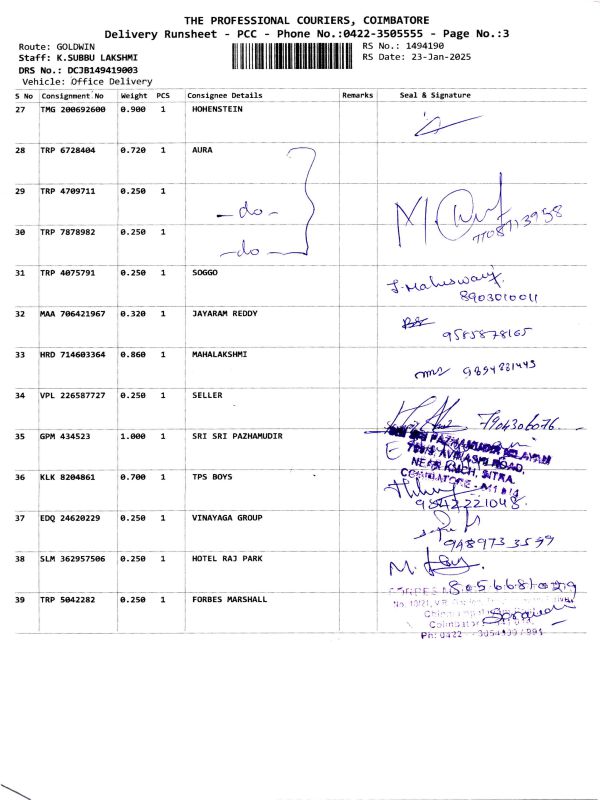 THE PROFESSIONAL COURIERS, COIMBATORE
Delivery Runsheet - PCC - Phone No.:0422-3505555 - Page No.:3
Route: GOLDWIN RS No.: 1494190
Staff: K.SUBBU LAKSHMI RS Date: 23-Jan-2025
DRS No.: DCJB149419003
Vehicle: Office Delivery
S No Consignment No Weight PCS Consignee Details Remarks Seal & Signature
27 TMG 200692600 0.900 1 HOHENSTEIN
28 TRP 6728404 0.720 1 AURA
29 TRP 4709711 0.250 1 -do-
7708713958
30 TRP 7878982 0.250 1
-do-
31 TRP 4075791 0.250 1 SOGGO J. Maheswari
8903010011
32 MAA 706421967 0.320 1 JAYARAM REDDY
9585878165
33 HRD 714603364 0.860 1 MAHALAKSHMI
ms 9894881443
34 VPL 226587727 0.250 1 SELLER
7904306076
35 GPM 434523 1.000 1 SRI SRI PAZHAMUDIR SRI SRI PAZHAMUDIR NILAYAM
AVINASHI ROAD,
NEAR KMCH, SITRA,
COIMBATORE
36 KLK 8204861 0.700 1 TPS BOYS
9842221048
37 EDQ 24620229 0.250 1 VINAYAGA GROUP
9489733599
38 SLM 362957506 0.250 1 HOTEL RAJ PARK
8056681029
39 TRP 5042282 0.250 1 FORBES MARSHALL FORBES
No. 10/21,
Coimbatore
Ph: 0422